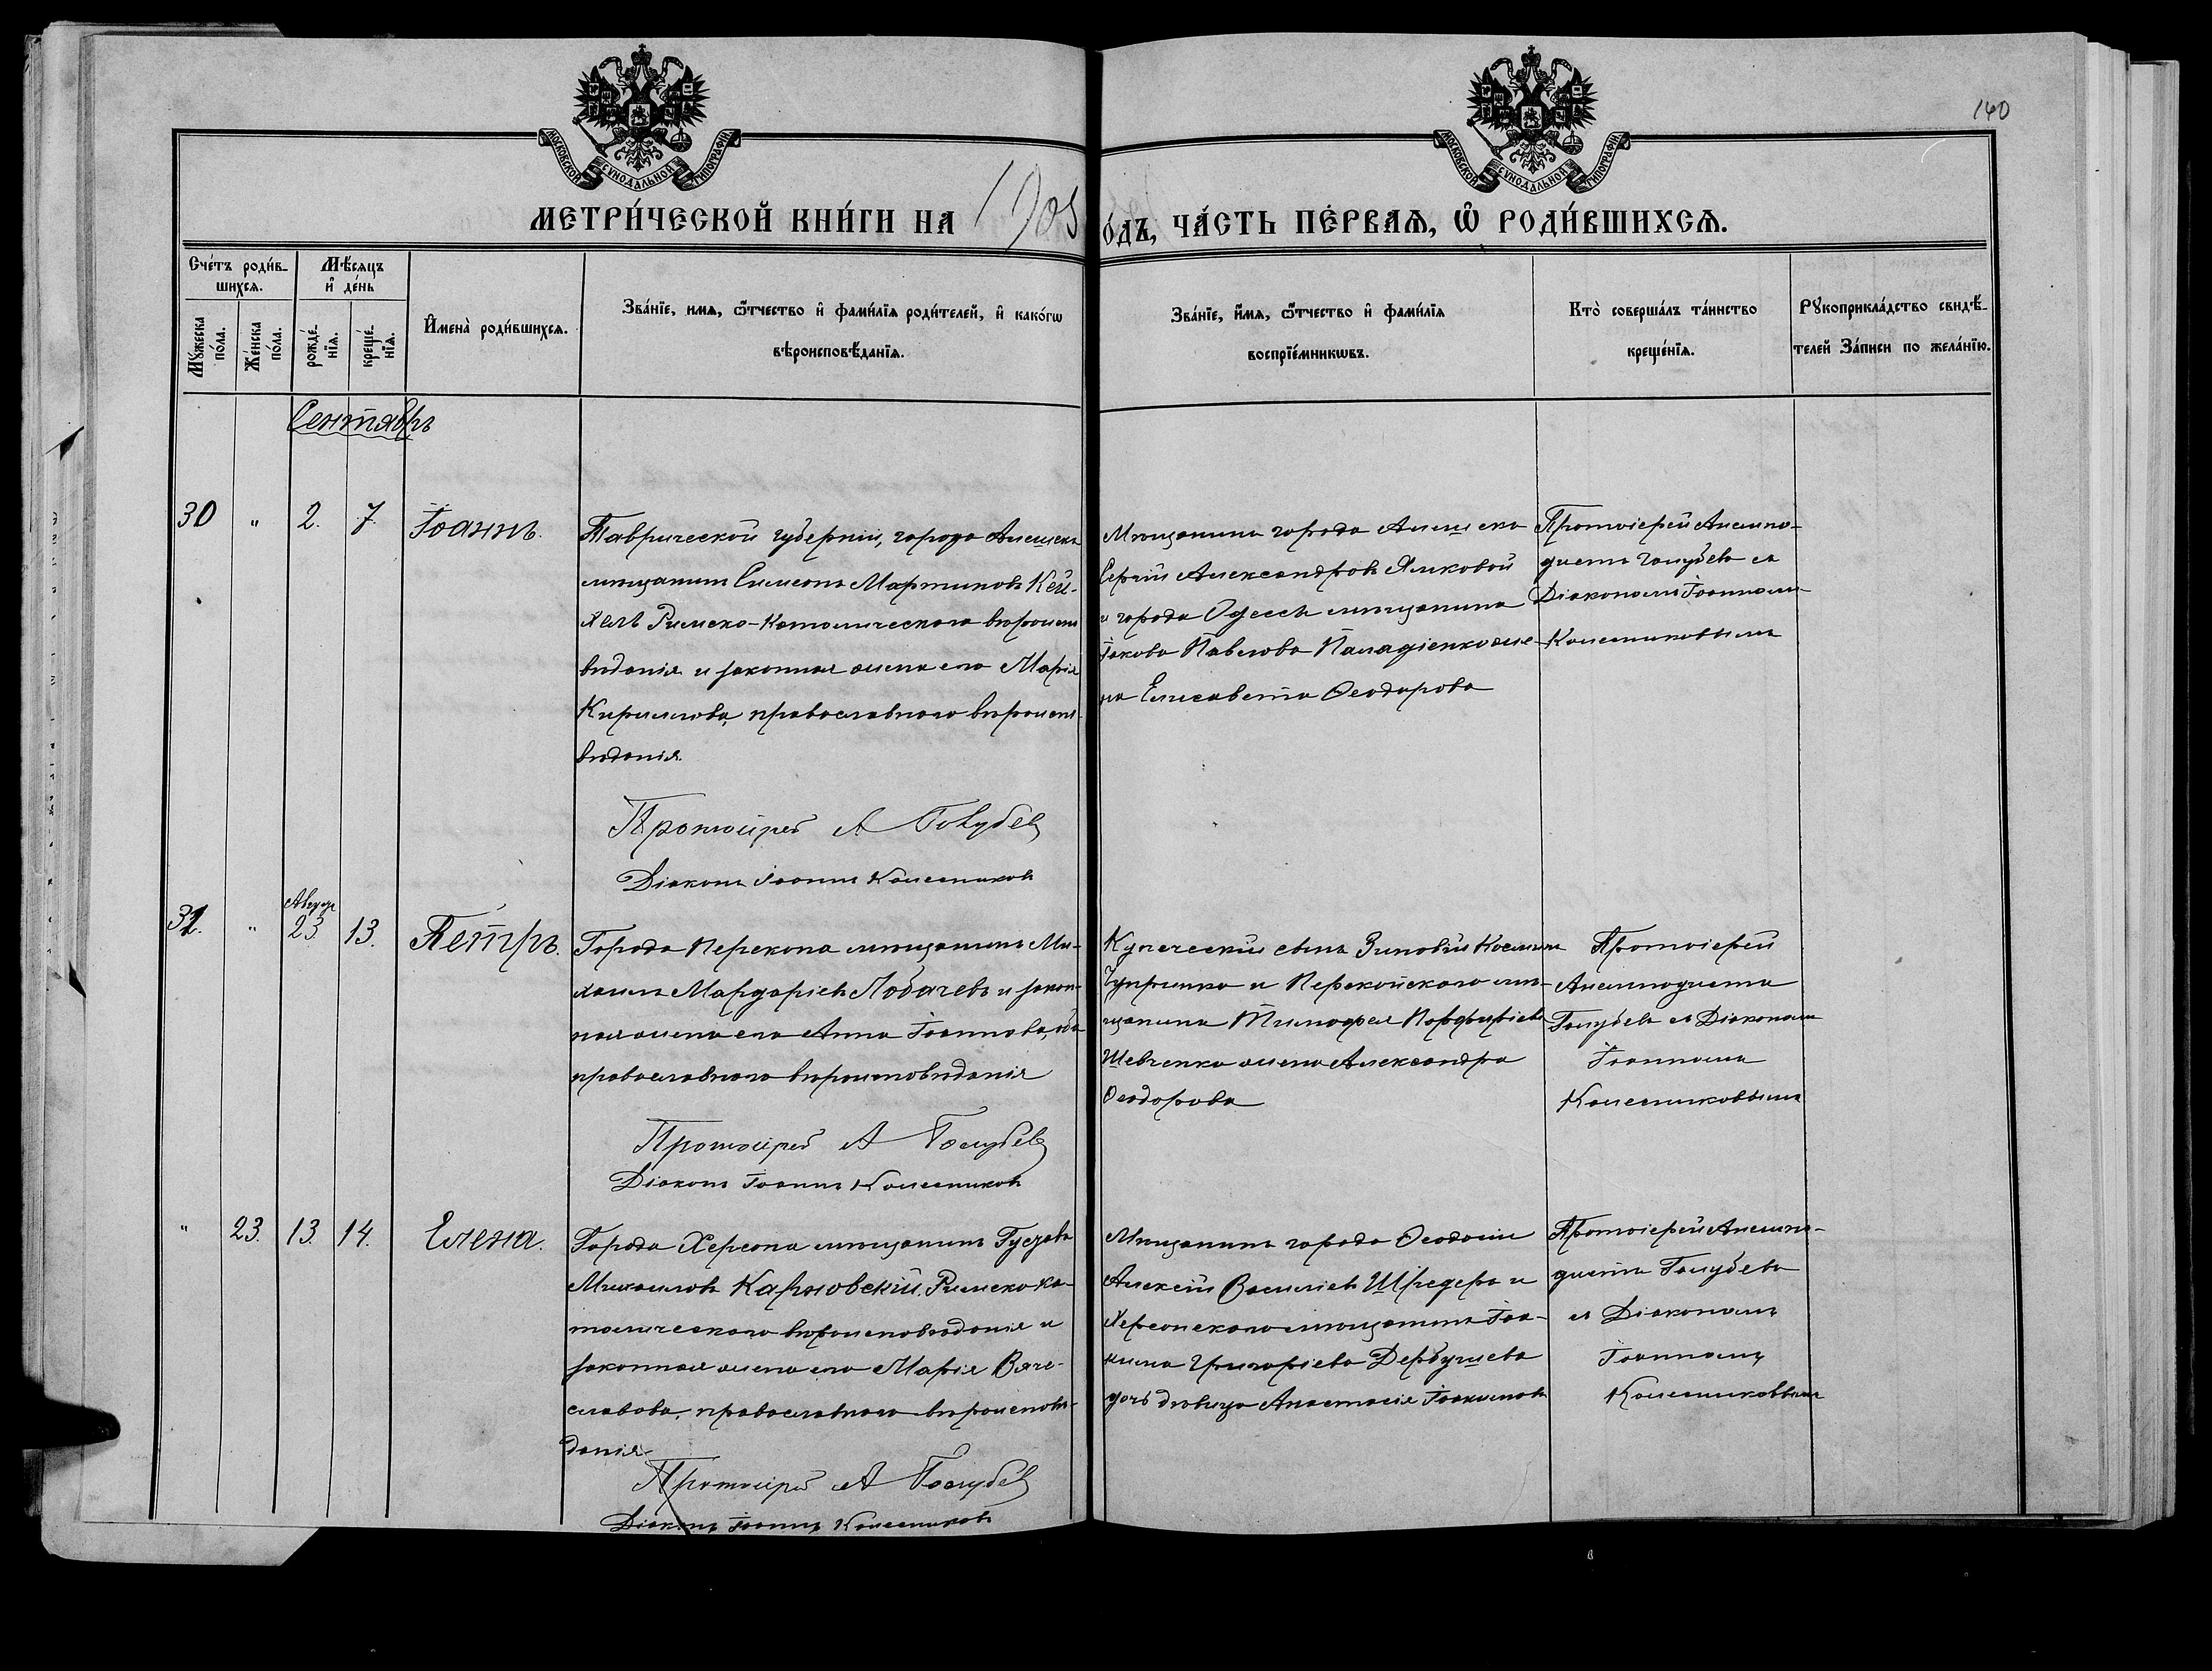 140
МОСКОВСКОЙ СУНОДАЛЬНОЙ ТИПОГРАФІИ
МОСКОВСКОЙ СУНОДАЛЬНОЙ ТИПОГРАФІИ
МЕТРИ́ЧЕСКОЙ КНИ́ГИ НА 1905
О́ДЪ, ЧА́СТЬ ПЕ́РВАѦ, Ѡ҆ РОДИ́ВШИХСѦ.
Сче́тъ роди́в-
шихсѧ.
Мꙋ́жеска по́ла.
Же́нска по́ла.
Мѣ́сѧцъ
и҆ де́нь
рожде́-
нїѧ.
креще́-
нїѧ.
И҆мена̀ роди́вшихсѧ.
Зва́нїе, имѧ, ѻ҆́тчество и҆ фами́лїѧ роди́телей, и҆ како́гѡ
вѣроисповѣ́данїѧ.
Зва́нїе, и҆́мѧ, ѻ҆́тчество и҆ фами́лїѧ
воспрїе́мникѡвъ.
Кто̀ соверша́лъ та́инство
креще́нїѧ.
Рꙋкоприкла́дство свидѣ́-
телей За́писи по жела́нїю.
Сентябрь
30 " 2. 7. Іоаннъ.
Таврической губерніи, города Алешекъ
мѣщанинъ Симеонъ Мартиновъ Кей-
хель Римско-Католическаго вѣроиспо
вѣданія и законная жена его Марія
Кириллова, православнаго вѣроиспо
вѣданія.
Протоіерей А Голубев
Діаконъ Іоаннъ Колесниковъ
Мѣщанинъ города Алешекъ
Сергій Александровъ Ялковой
и города Одессы мѣщанина
Іакова Павлова Паладіенко же-
на Елисавета Ѳеодорова
Протоіерей Анемпо-
дистъ Голубевъ съ
Діакономъ Іоанномъ
Колесниковымъ
31. " Август 23. 13. Петръ.
Города Перекопа мѣщанинъ Ми-
хаилъ Мардаріевъ Лобачевъ и закон-
ная жена его Анна Іоаннова, оба
православнаго вѣроисповѣданія
Протоіерей А Голубев
Діаконъ Іоаннъ Колесниковъ
Купеческій сынъ Зиновій Косминъ
Чупринко и Перекопскаго мѣ-
щанина Тимоѳея Порфиріева
Шевченко жена Александра
Ѳеодорова
Протоіерей
Анемподистъ
Голубевъ съ Діакономъ
Іоанномъ
Колесниковымъ
" 23. 13. 14. Елена.
Города Херсона мѣщанинъ
Михаиловъ Карновскій, Римско-ка-
толическаго вѣроисповѣданія и
законная жена его Марія Вяче-
славова, православнаго вѣроисповѣ-
данія
Протоіерей А Голубев
Діаконъ Іоаннъ Колесниковъ
Мѣщанинъ города Ѳеодосіи
Алексій Василіевъ Шредеръ и
Херсонскаго мѣщанина Іоа-
кима Григоріева Дербушева
дочь дѣвица Анастасія Іоакимова
Протоіерей Анемпо-
дистъ Голубевъ
съ Діакономъ
Іоанномъ
Колесниковымъ